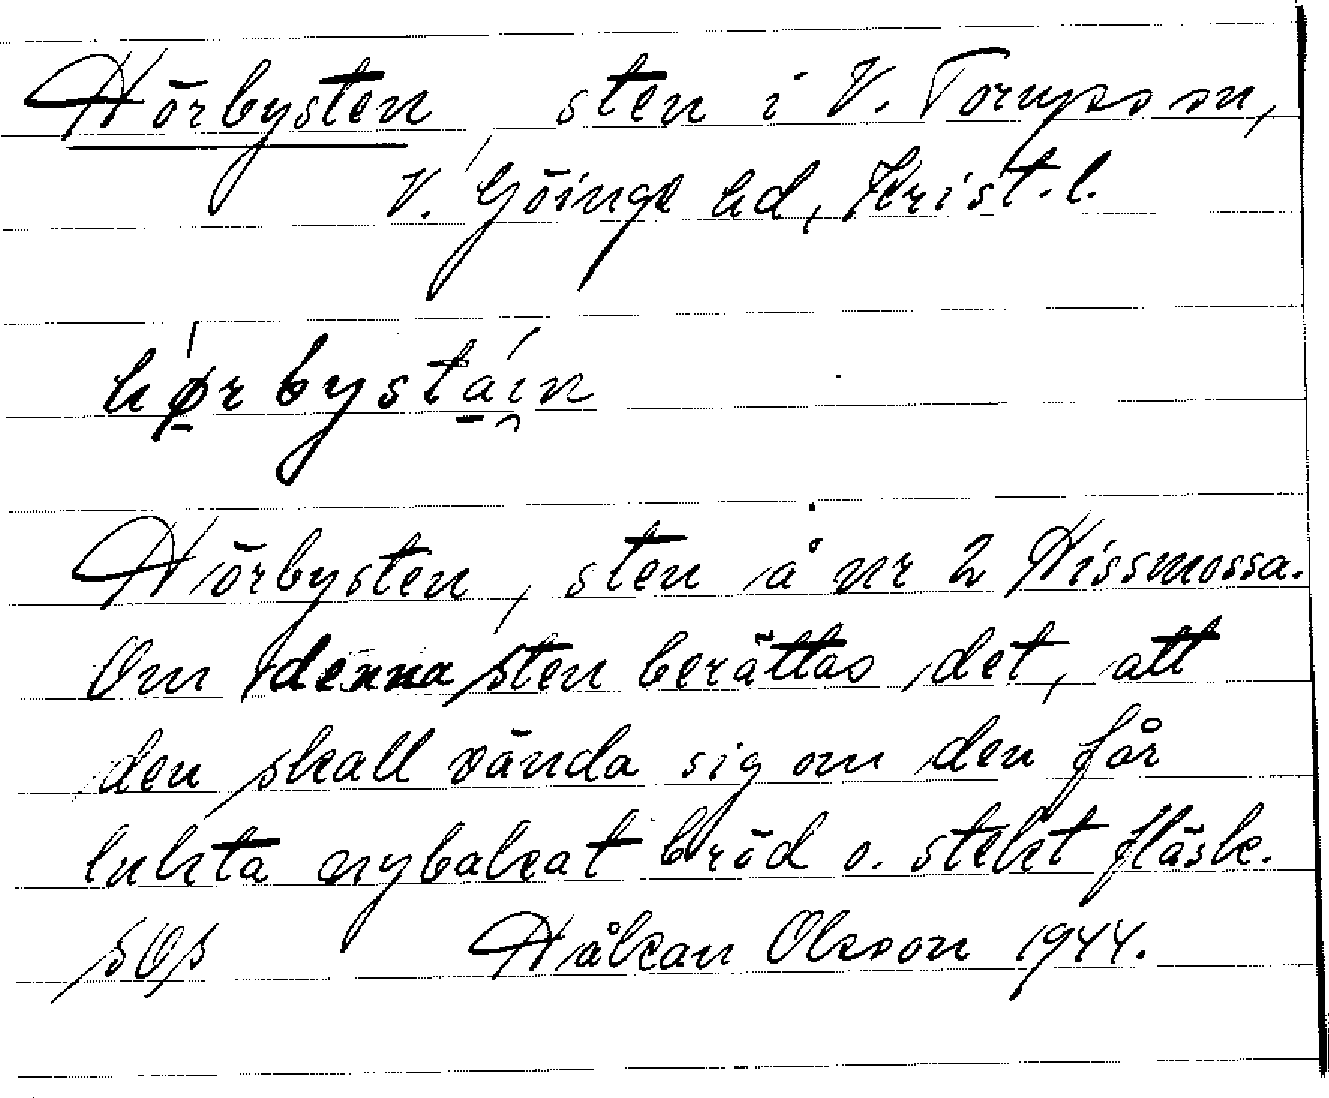 Hörbysten sten i V. Torups sn,
V. Göinge hd, Krist. l.
hørbystain
Hörbysten, sten å nr 2 Hissmossa.
Om denna sten berättas det, att
den skall vända sig om den får
lukta nybakat bröd o. stekt fläsk.
Håkan Olsson 1944.